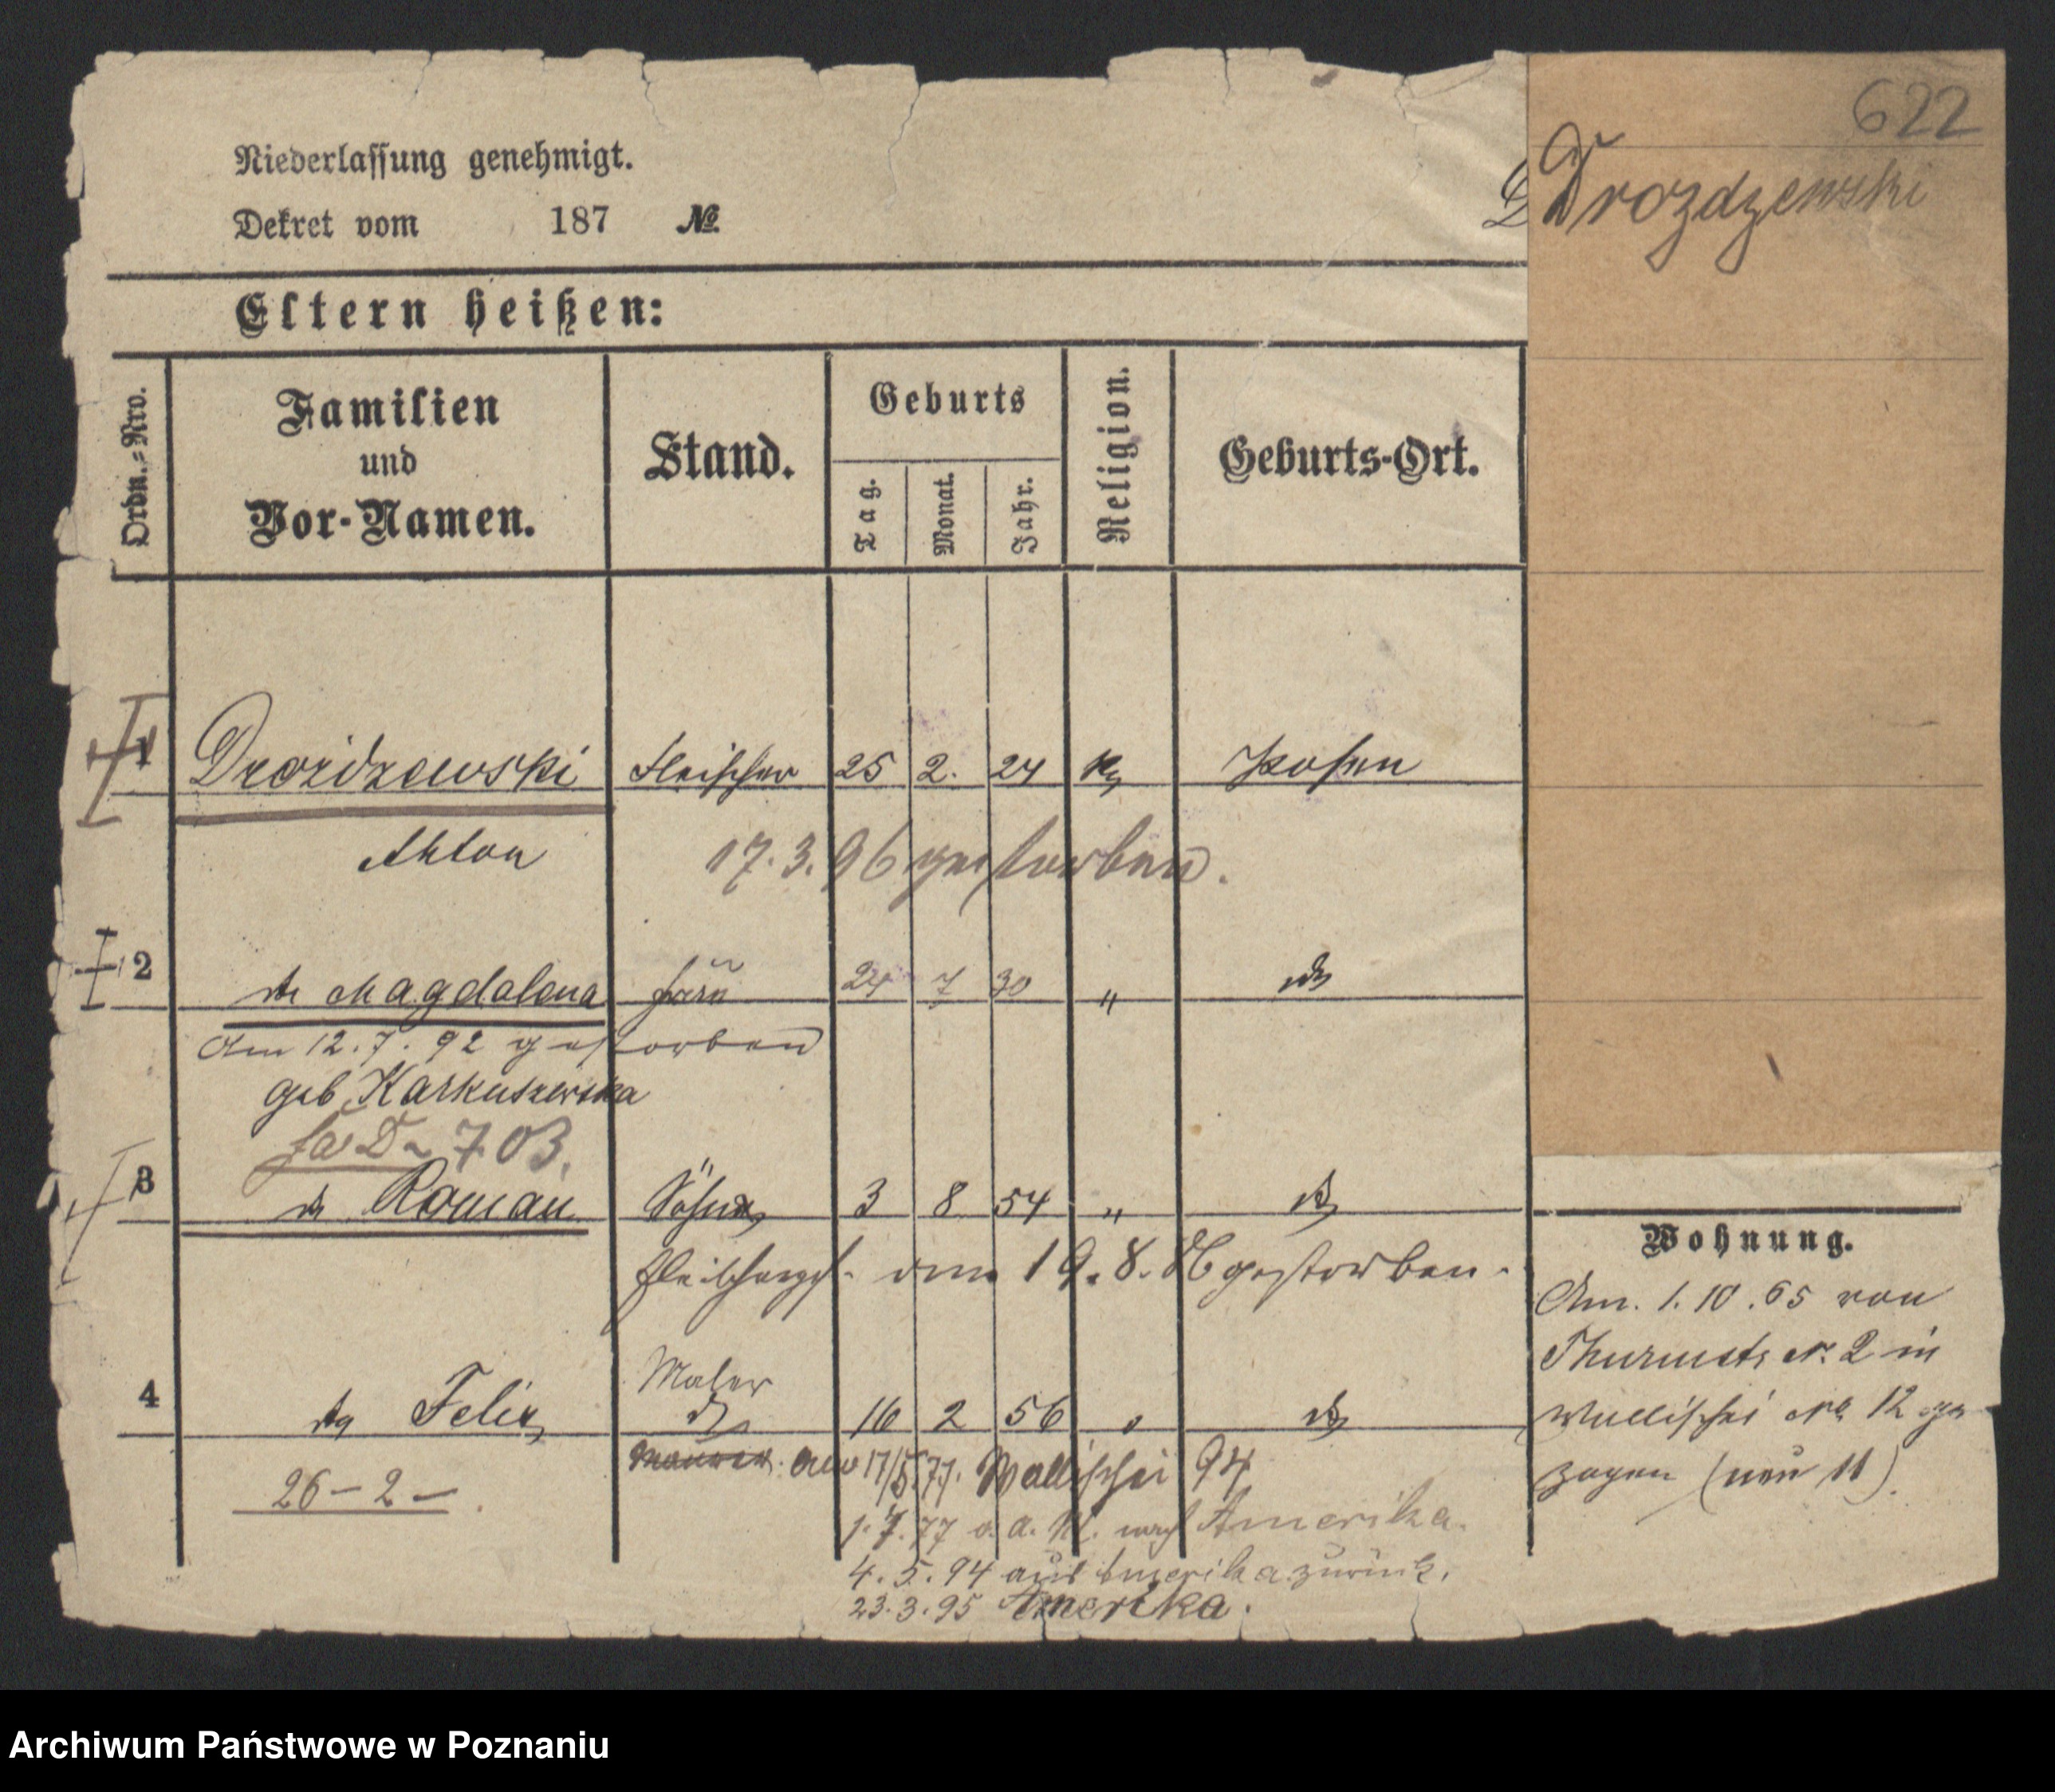 622
Drozdzewski
Niederlassung genehmigt.
Dekret vom 187 №
Eltern heißen:
Ordn.-Nro.
Familien
und
Vor-Namen.
Stand.
Geburts
Tag.
Monat.
Jahr.
Religion.
Geburts-Ort.
1 Drozdzewski Fleischer 25 2. 24 Posen
Anton 17.3.96 gestorben.
2 Magdalena Frau 24 7 30 "
Am 12.7.92 gestorben
geb Karkuszewska
703.
3 Roman 3 8 54 "
am 19.8.86 gestorben.
Maler
4 Felix 16 2 56
17/5 77. Wallischei 94
26-2-
1.7.77 nach Amerika.
4.5.94 aus Amerika zurück.
23.3.95 Amerika.
Wohnung.
Am. 1.10.65 von
Thurmstr. Nr. 2 in
Wallischei No 12 ge
zogen (neu 11).
Archiwum Państwowe w Poznaniu